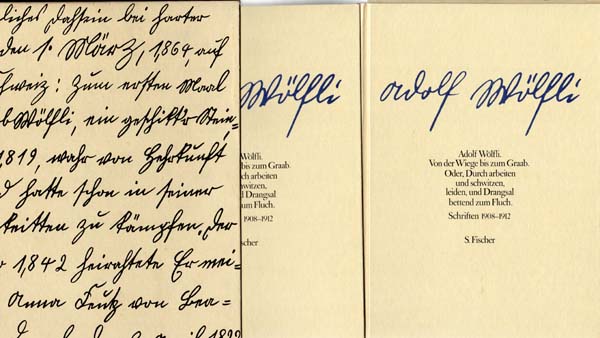 liches Dahsein bei harter
den 1. März, 1,864, auf
chweiz: Zum ersten Maal
b Wölfli, ein geschikt'r Stein=
1,819, wahr von Hehrkunft
d hatte schon in seiner
keitten zu kämpfen. Der
1,842 heirahtete Er mei=
Anna Feutz von Bea=
Wölfli
Wölfli.
bis zum Graab.
ch arbeiten
witzen,
d Drangsal
um Fluch.
1908-1912
scher
Adolf Wölfli
Adolf Wölfli.
Von der Wiege bis zum Graab.
Oder, Durch arbeiten
und schwitzen,
leiden, und Drangsal
bettend zum Fluch.
Schriften 1908-1912
S. Fischer